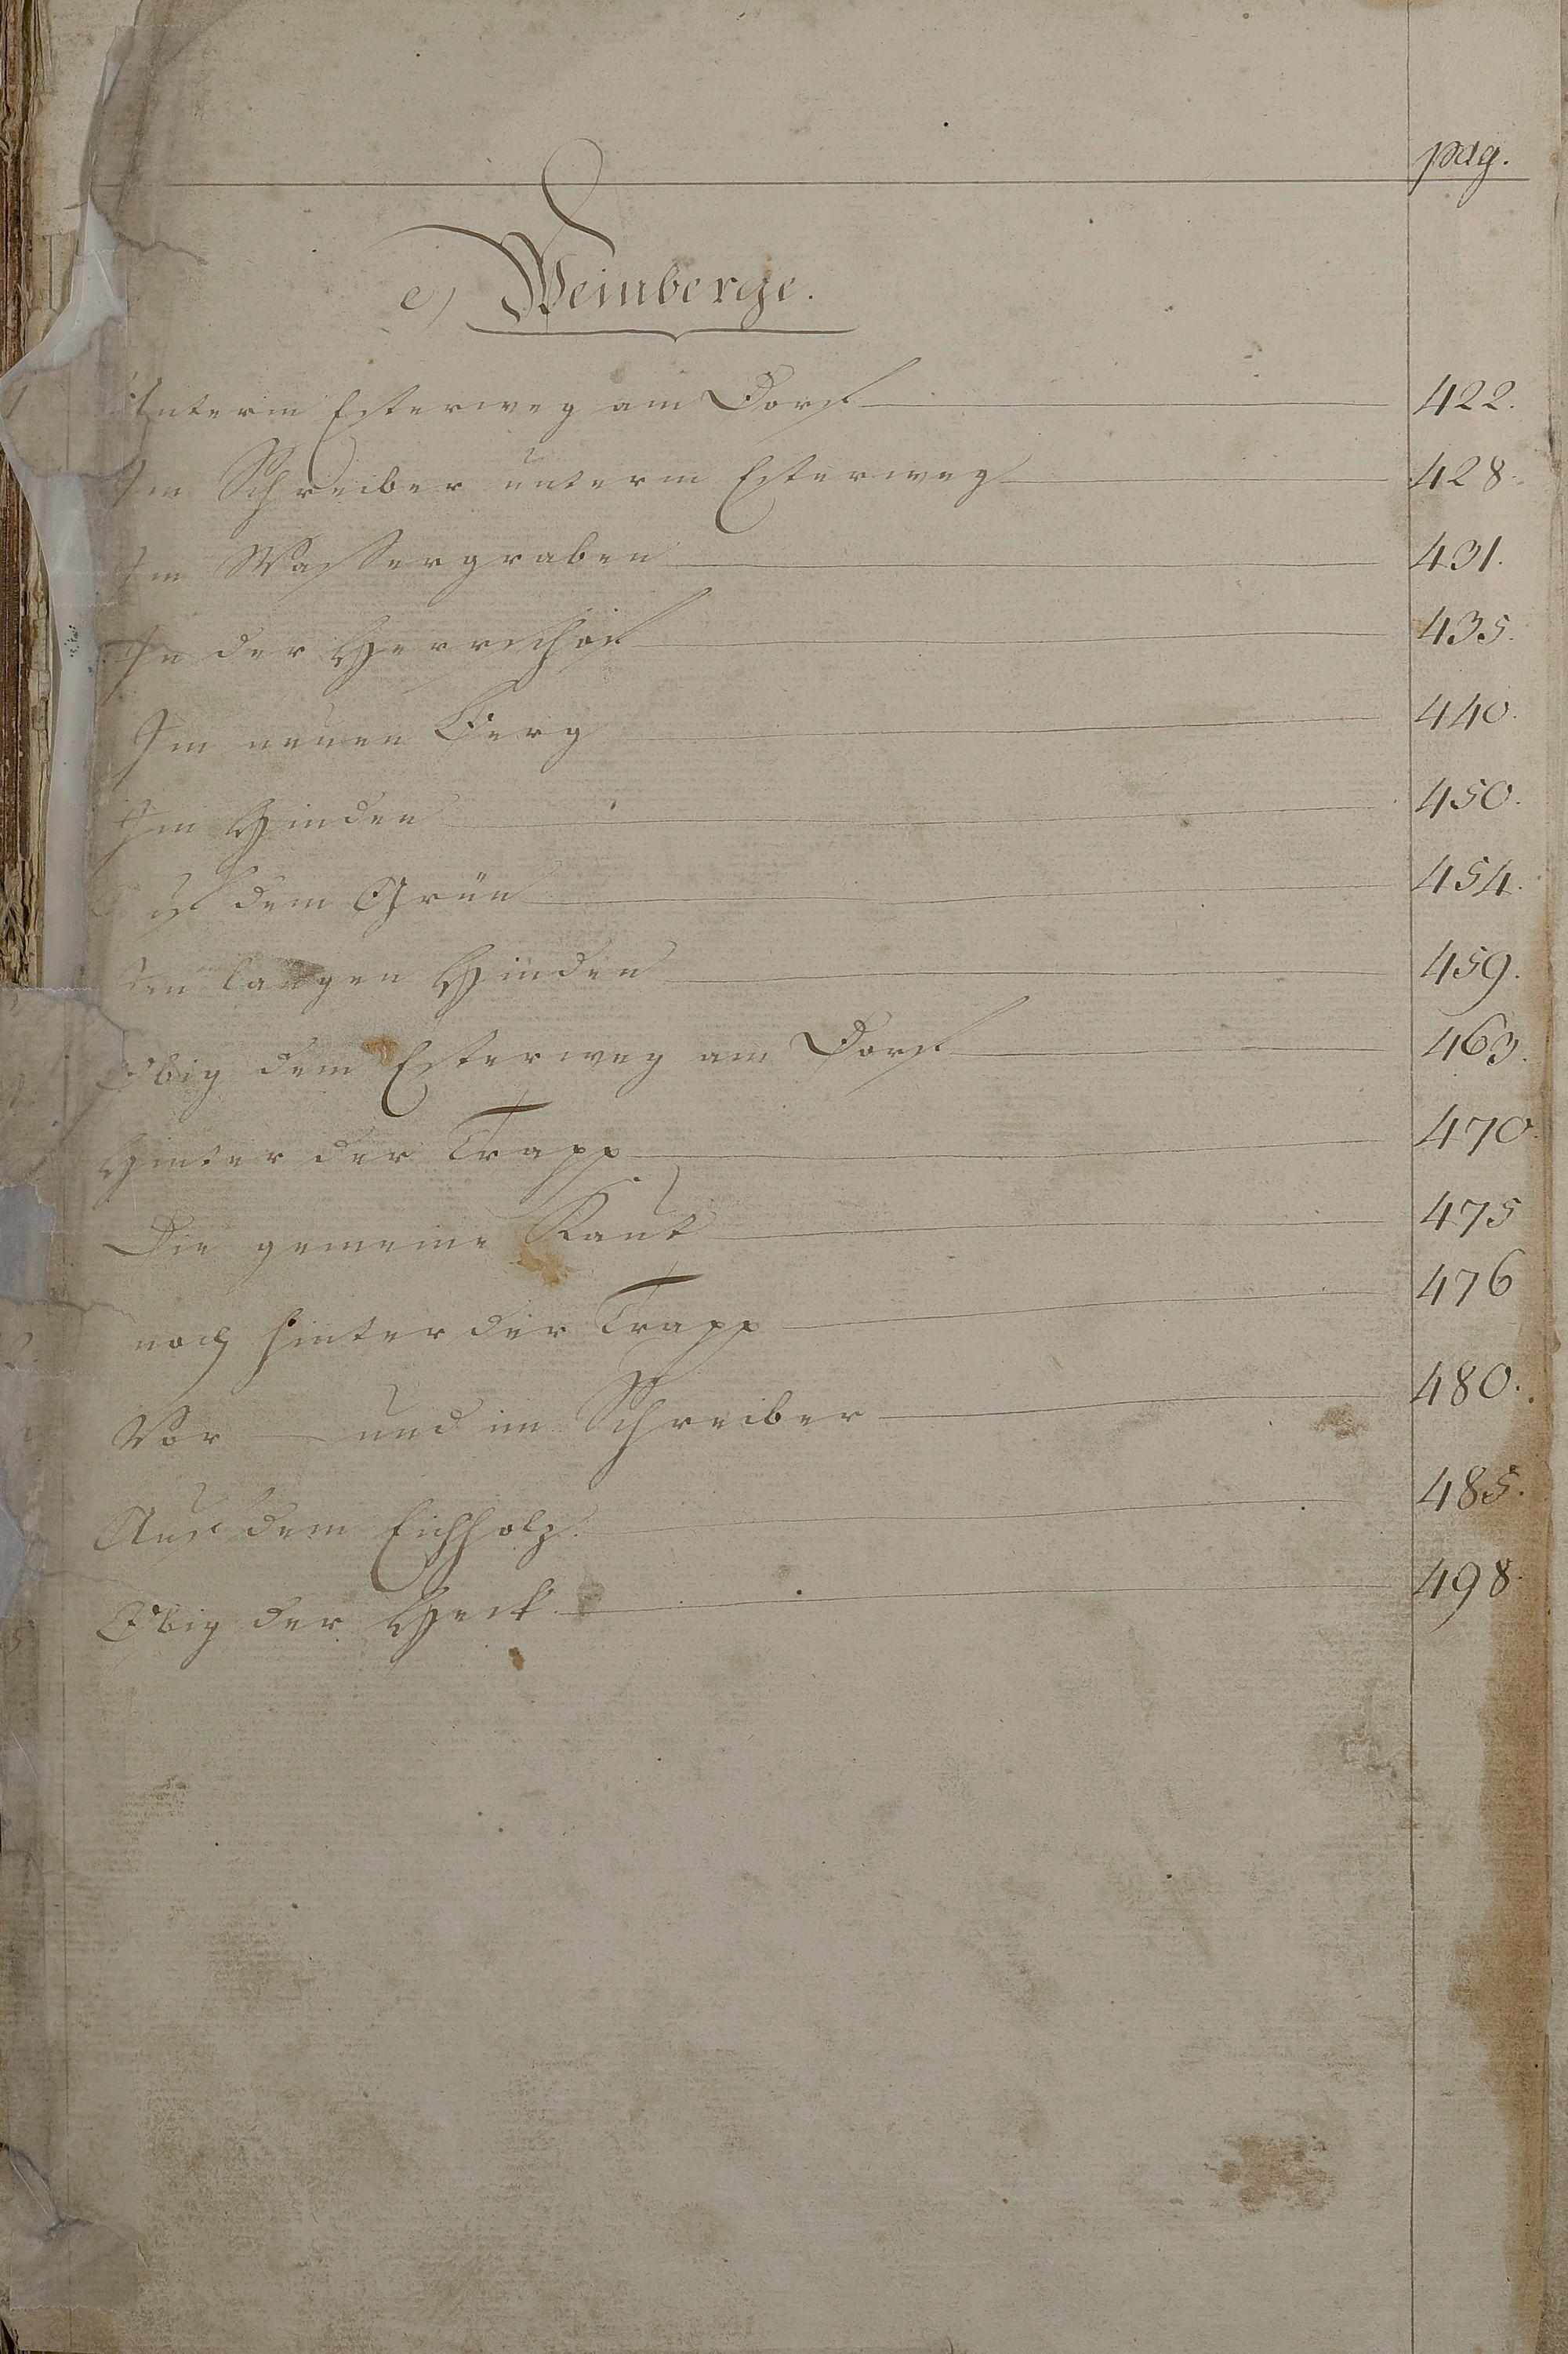 pag.
e) Weinberge.
Unterm Esterweg am Dorf 422.
Im Schreiber unterm Esterweg 428.
Im Wassergraben 431.
In der Herrschaft 435.
Im neuen Berg 440.
Im Hinden 450.
uf dem Grün 454.
Im langen Hinden 459.
Obig dem Esterweg am Dorf 463.
Hinter der Trapp 470.
Die gemeine Kaut 475
noch hinter der Trapp 476
Vor und im Schreiber 480.
Auf dem Eichholz 485.
Obig der Heck 498.